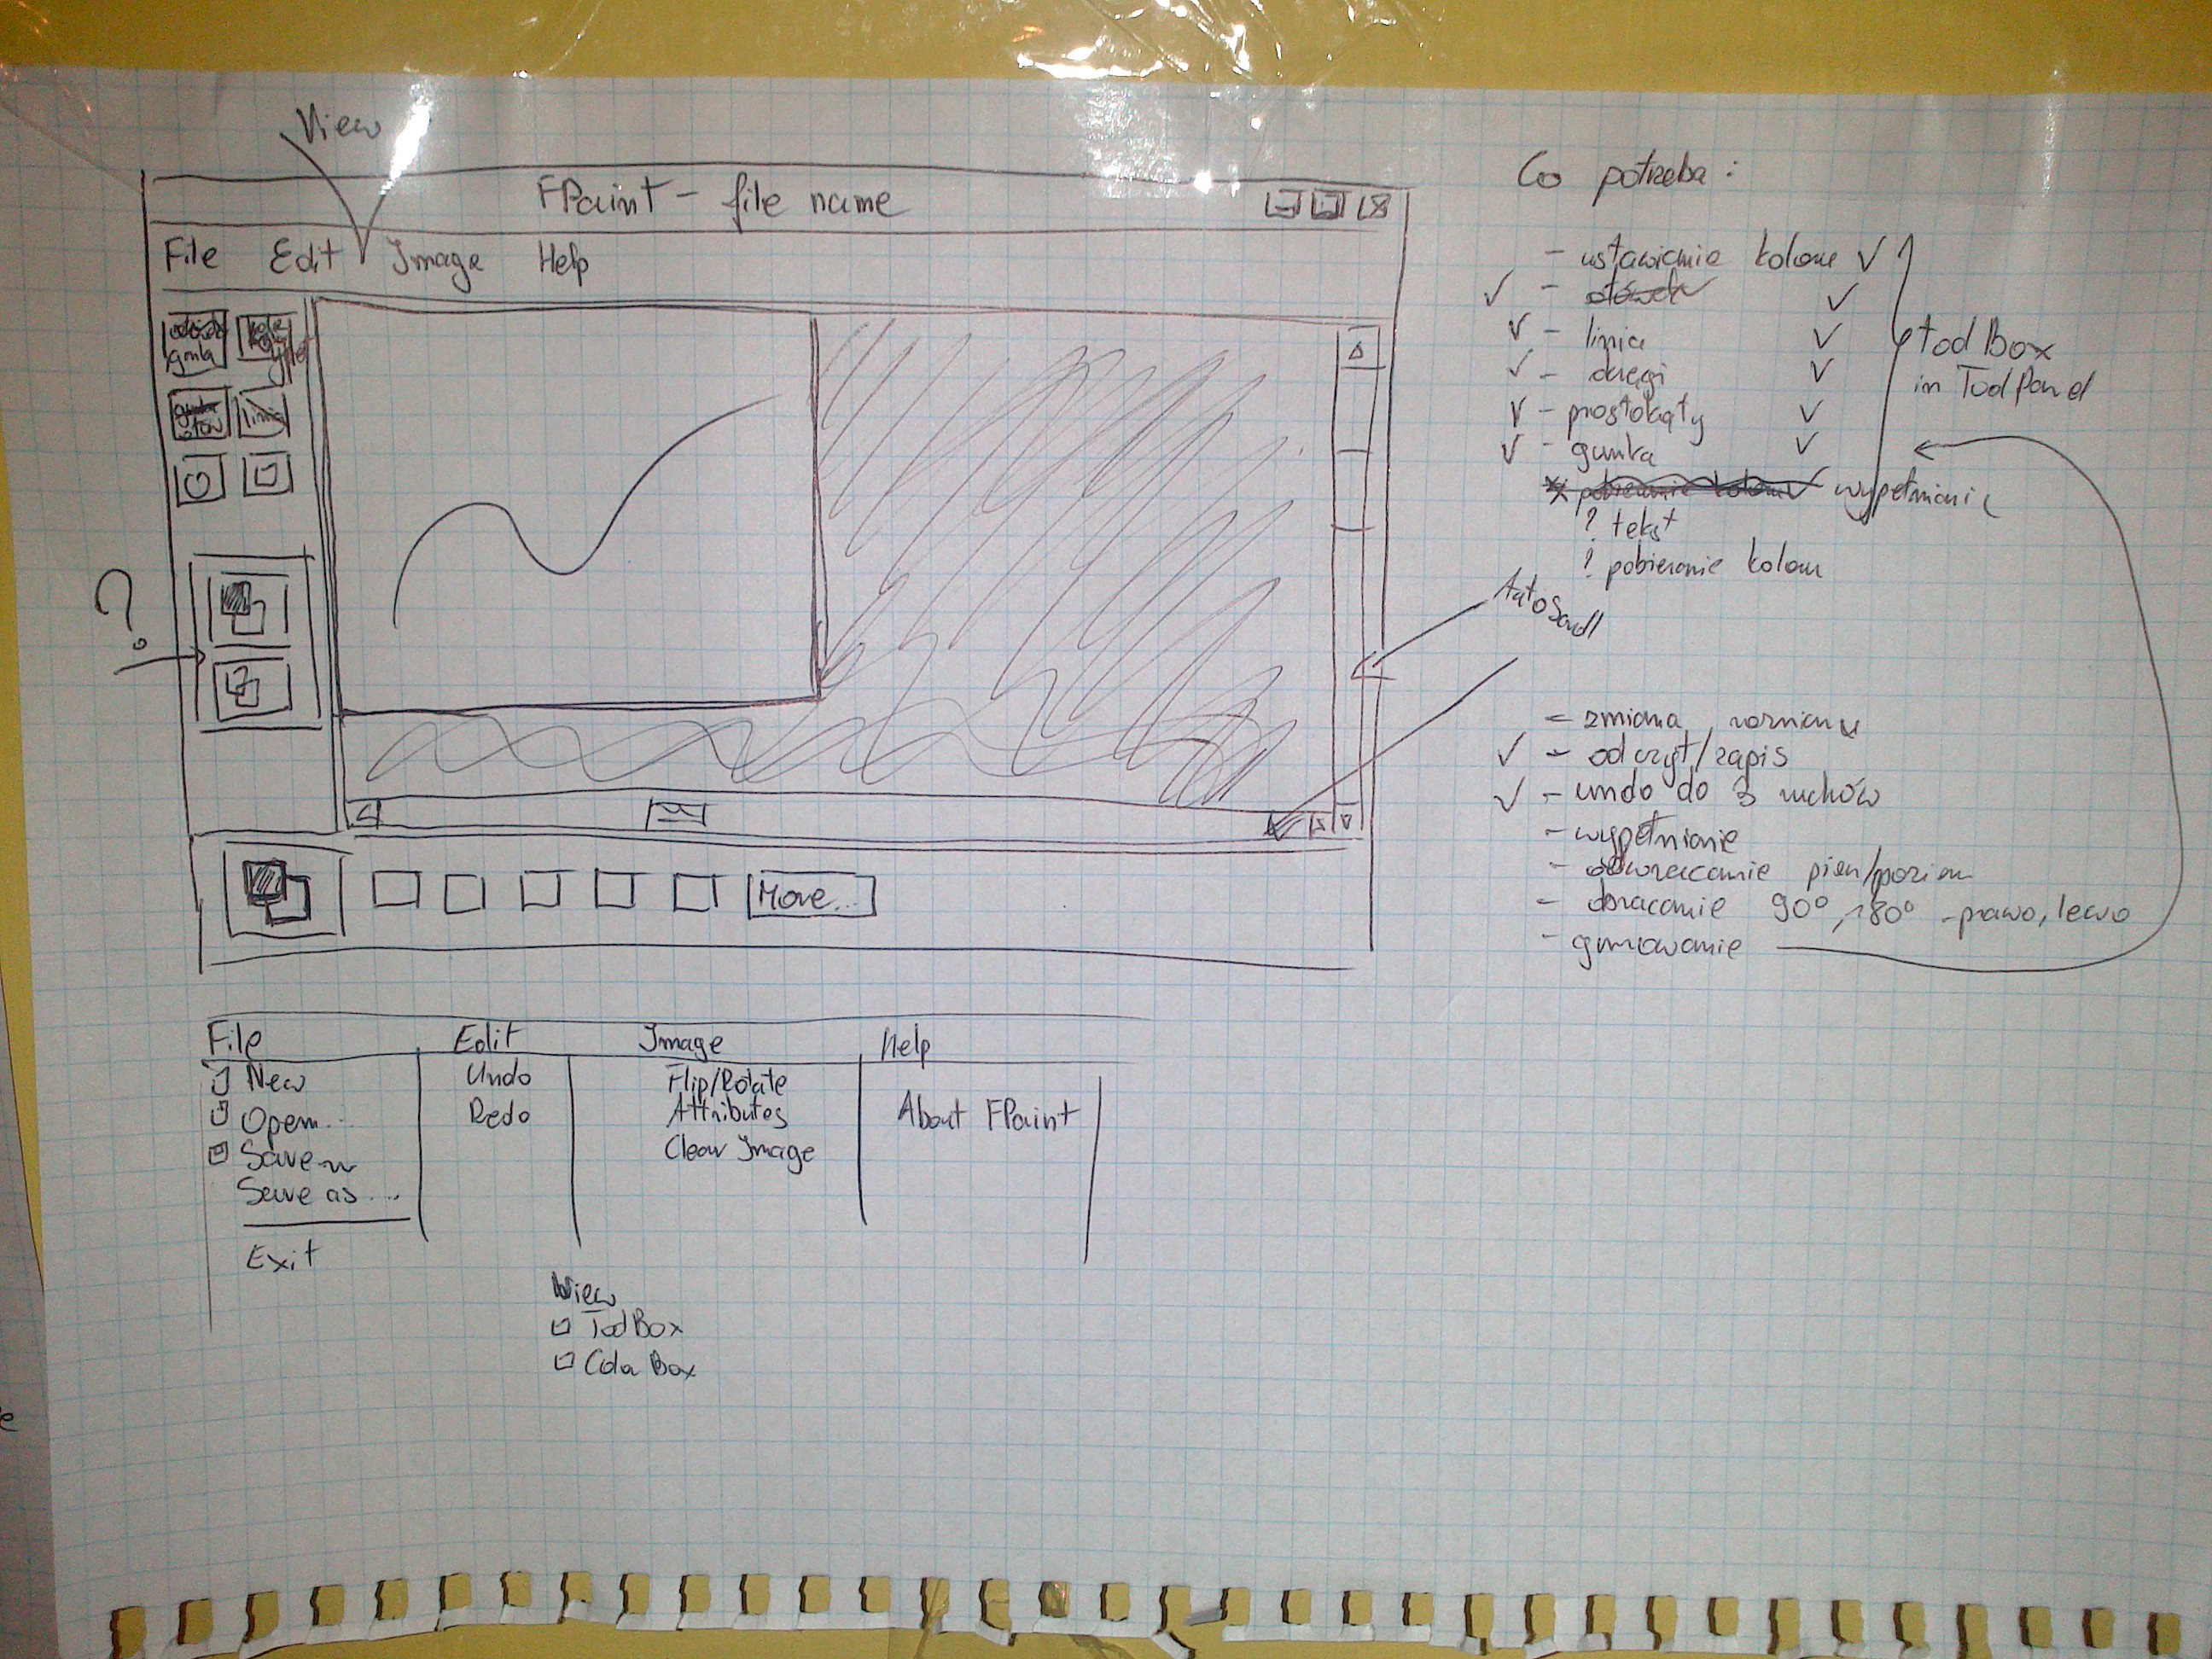 View
FPaint - file name
File Edit Image Help
gumka
linia
?
More...
Co potrzeba:
- ustawienie koloru
- ołówek
- linia
- okręgi
- prostokąty
- gumka
toolBox
in ToolPanel
pobieranie koloru wypełnianie
? tekst
? pobieranie koloru
AutoScroll
- zmiana rozmiaru
- odczyt/zapis
- undo do 3 ruchów
- wypełnianie
- odwracanie pion/poziom
- obracanie 90°, 180° - prawo, lewo
- gumowanie
File Edit Image Help
New Undo Flip/Rotate
Open... Redo Attributes About FPaint
Save Clear Image
Save as...
Exit
View
ToolBox
Color Box